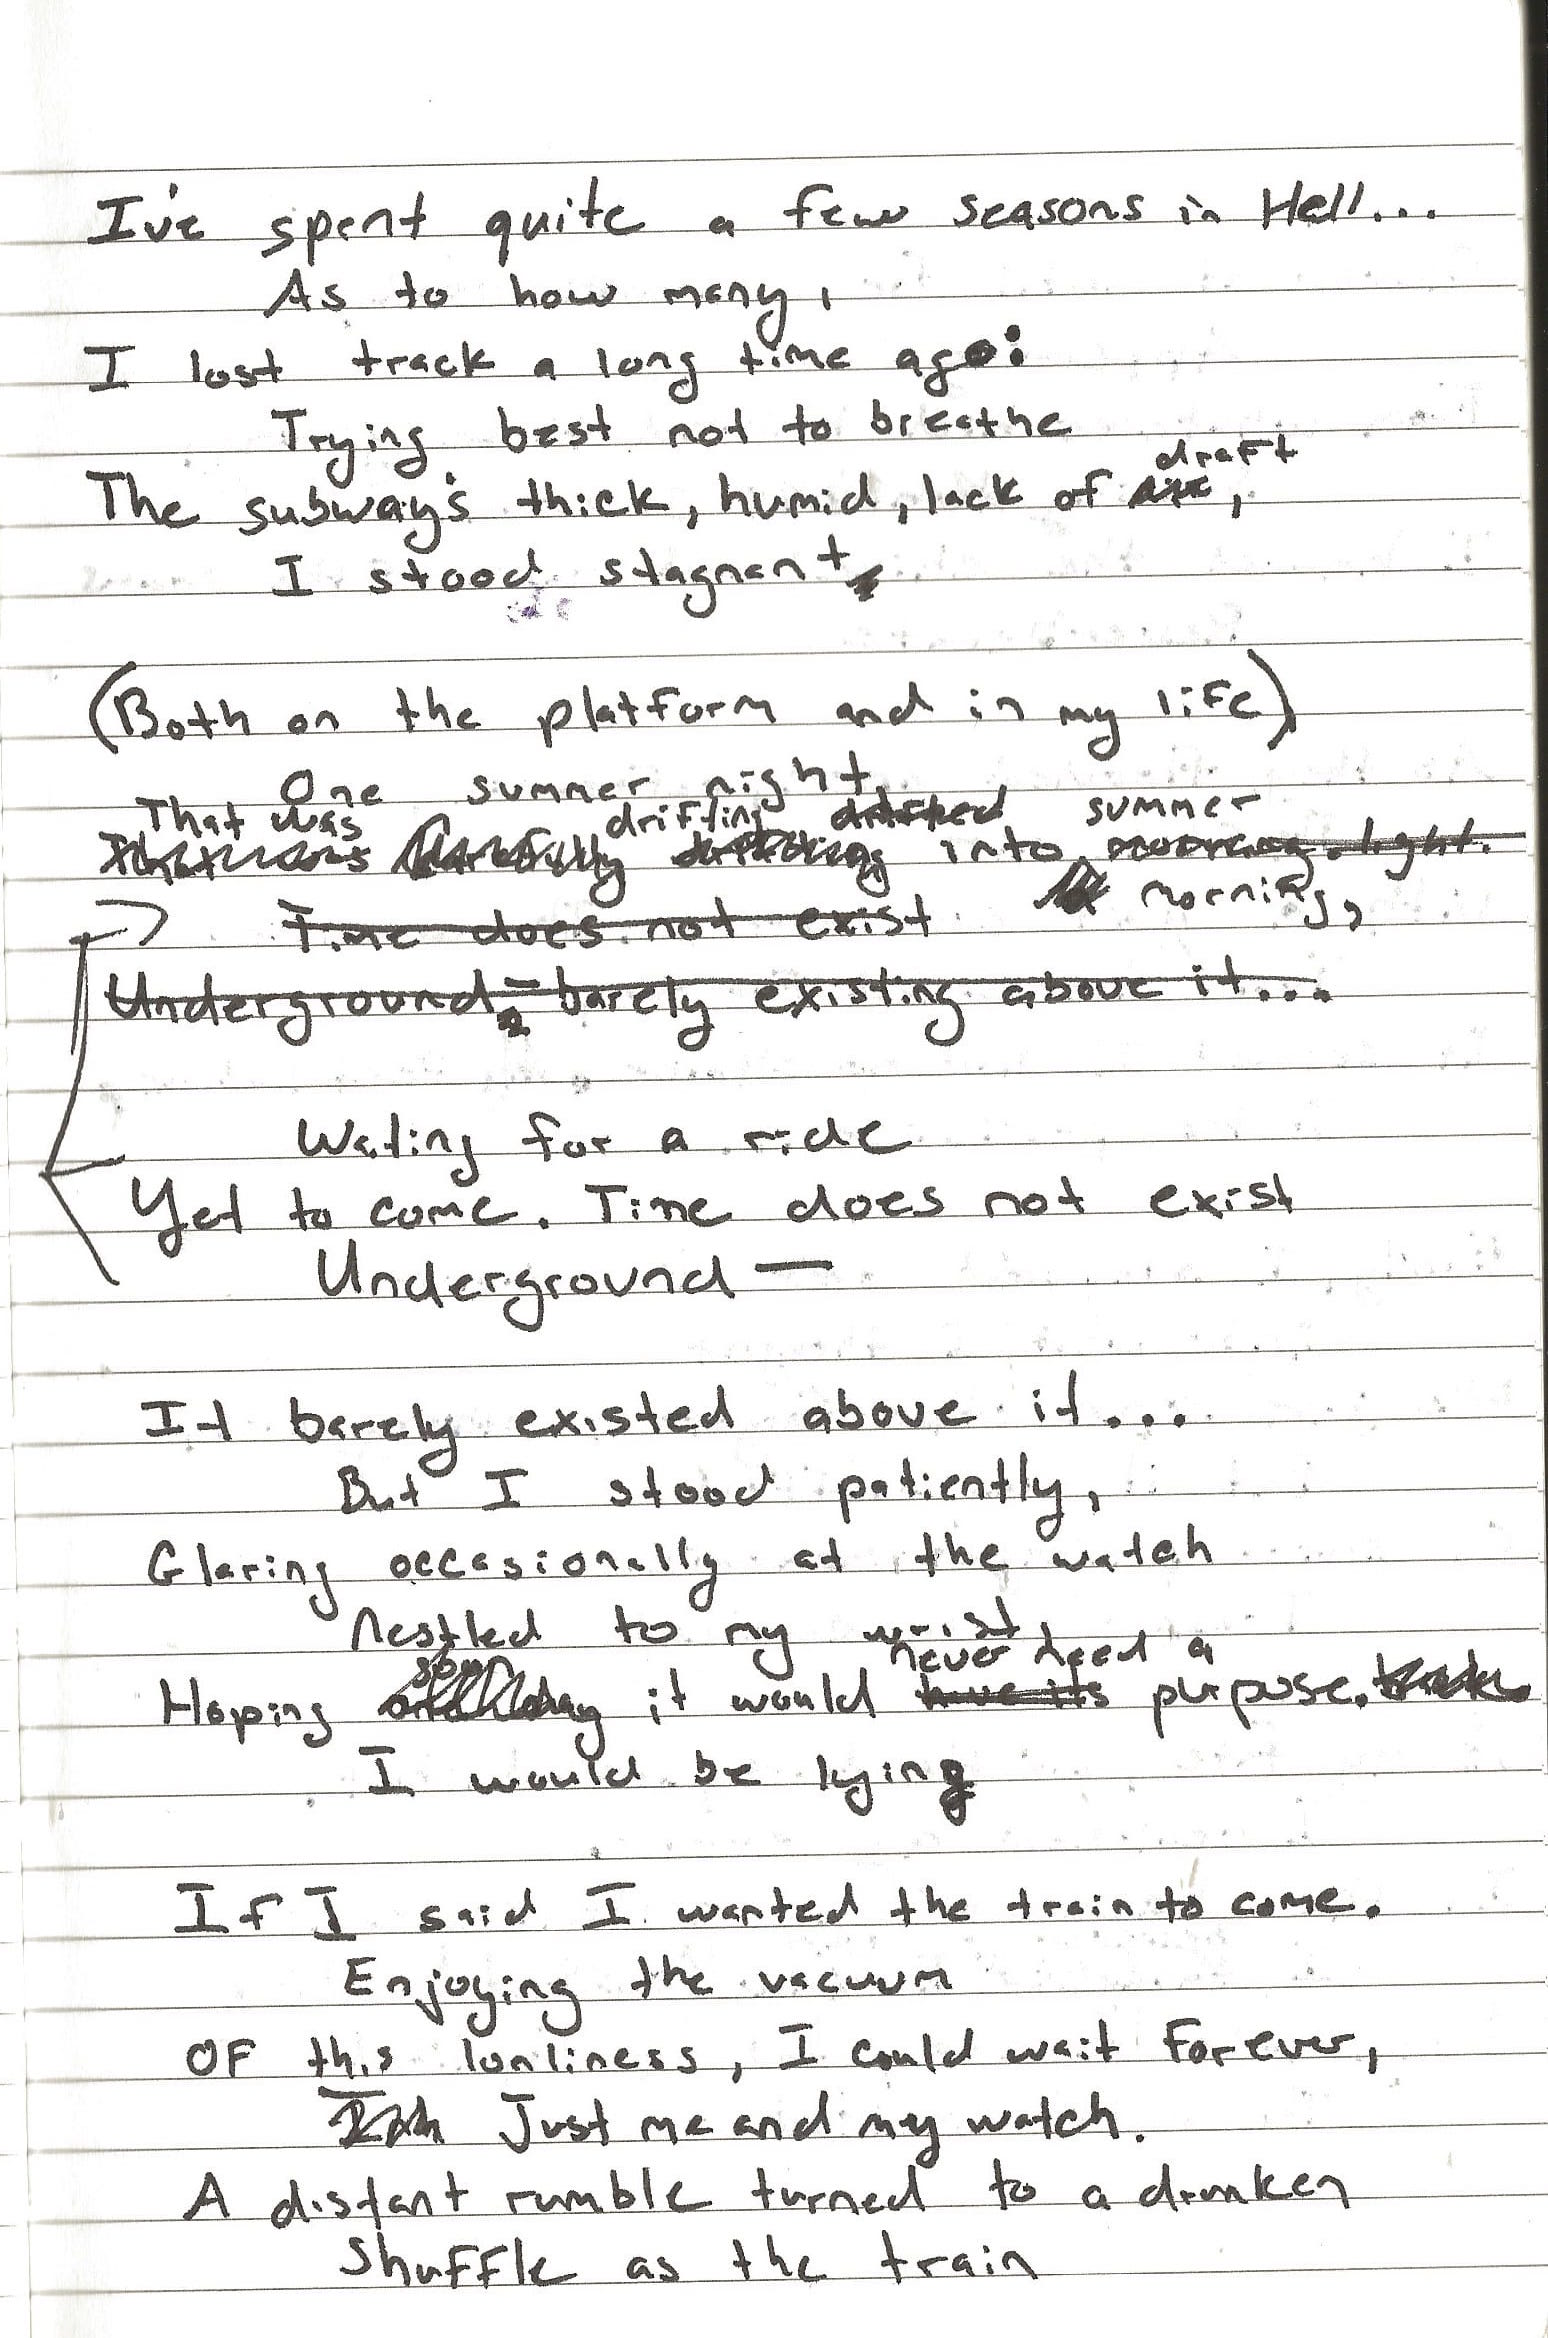 I've spent quite a few seasons in Hell...
As to how many,
I lost track a long time ago:
Trying best not to breathe
draft
The subway's thick, humid, lack of ,
I stood stagnant
(Both on the platform and in my life)
One summer night
That was drifting drifted summer
into morning light.
Time does not exist morning,
Underground - barely existing above it...
Waiting for a ride
Yet to come. Time does not exist
Underground —
It barely existed above it...
But I stood patiently,
Glaring occasionally at the watch
Nestled to my wrist,
some never need a
Hoping day it would have its purpose.
I would be lying
If I said I wanted the train to come.
Enjoying the vacuum
OF this lonliness, I could wait forever,
Just me and my watch.
A distant rumble turned to a drunken
Shuffle as the train